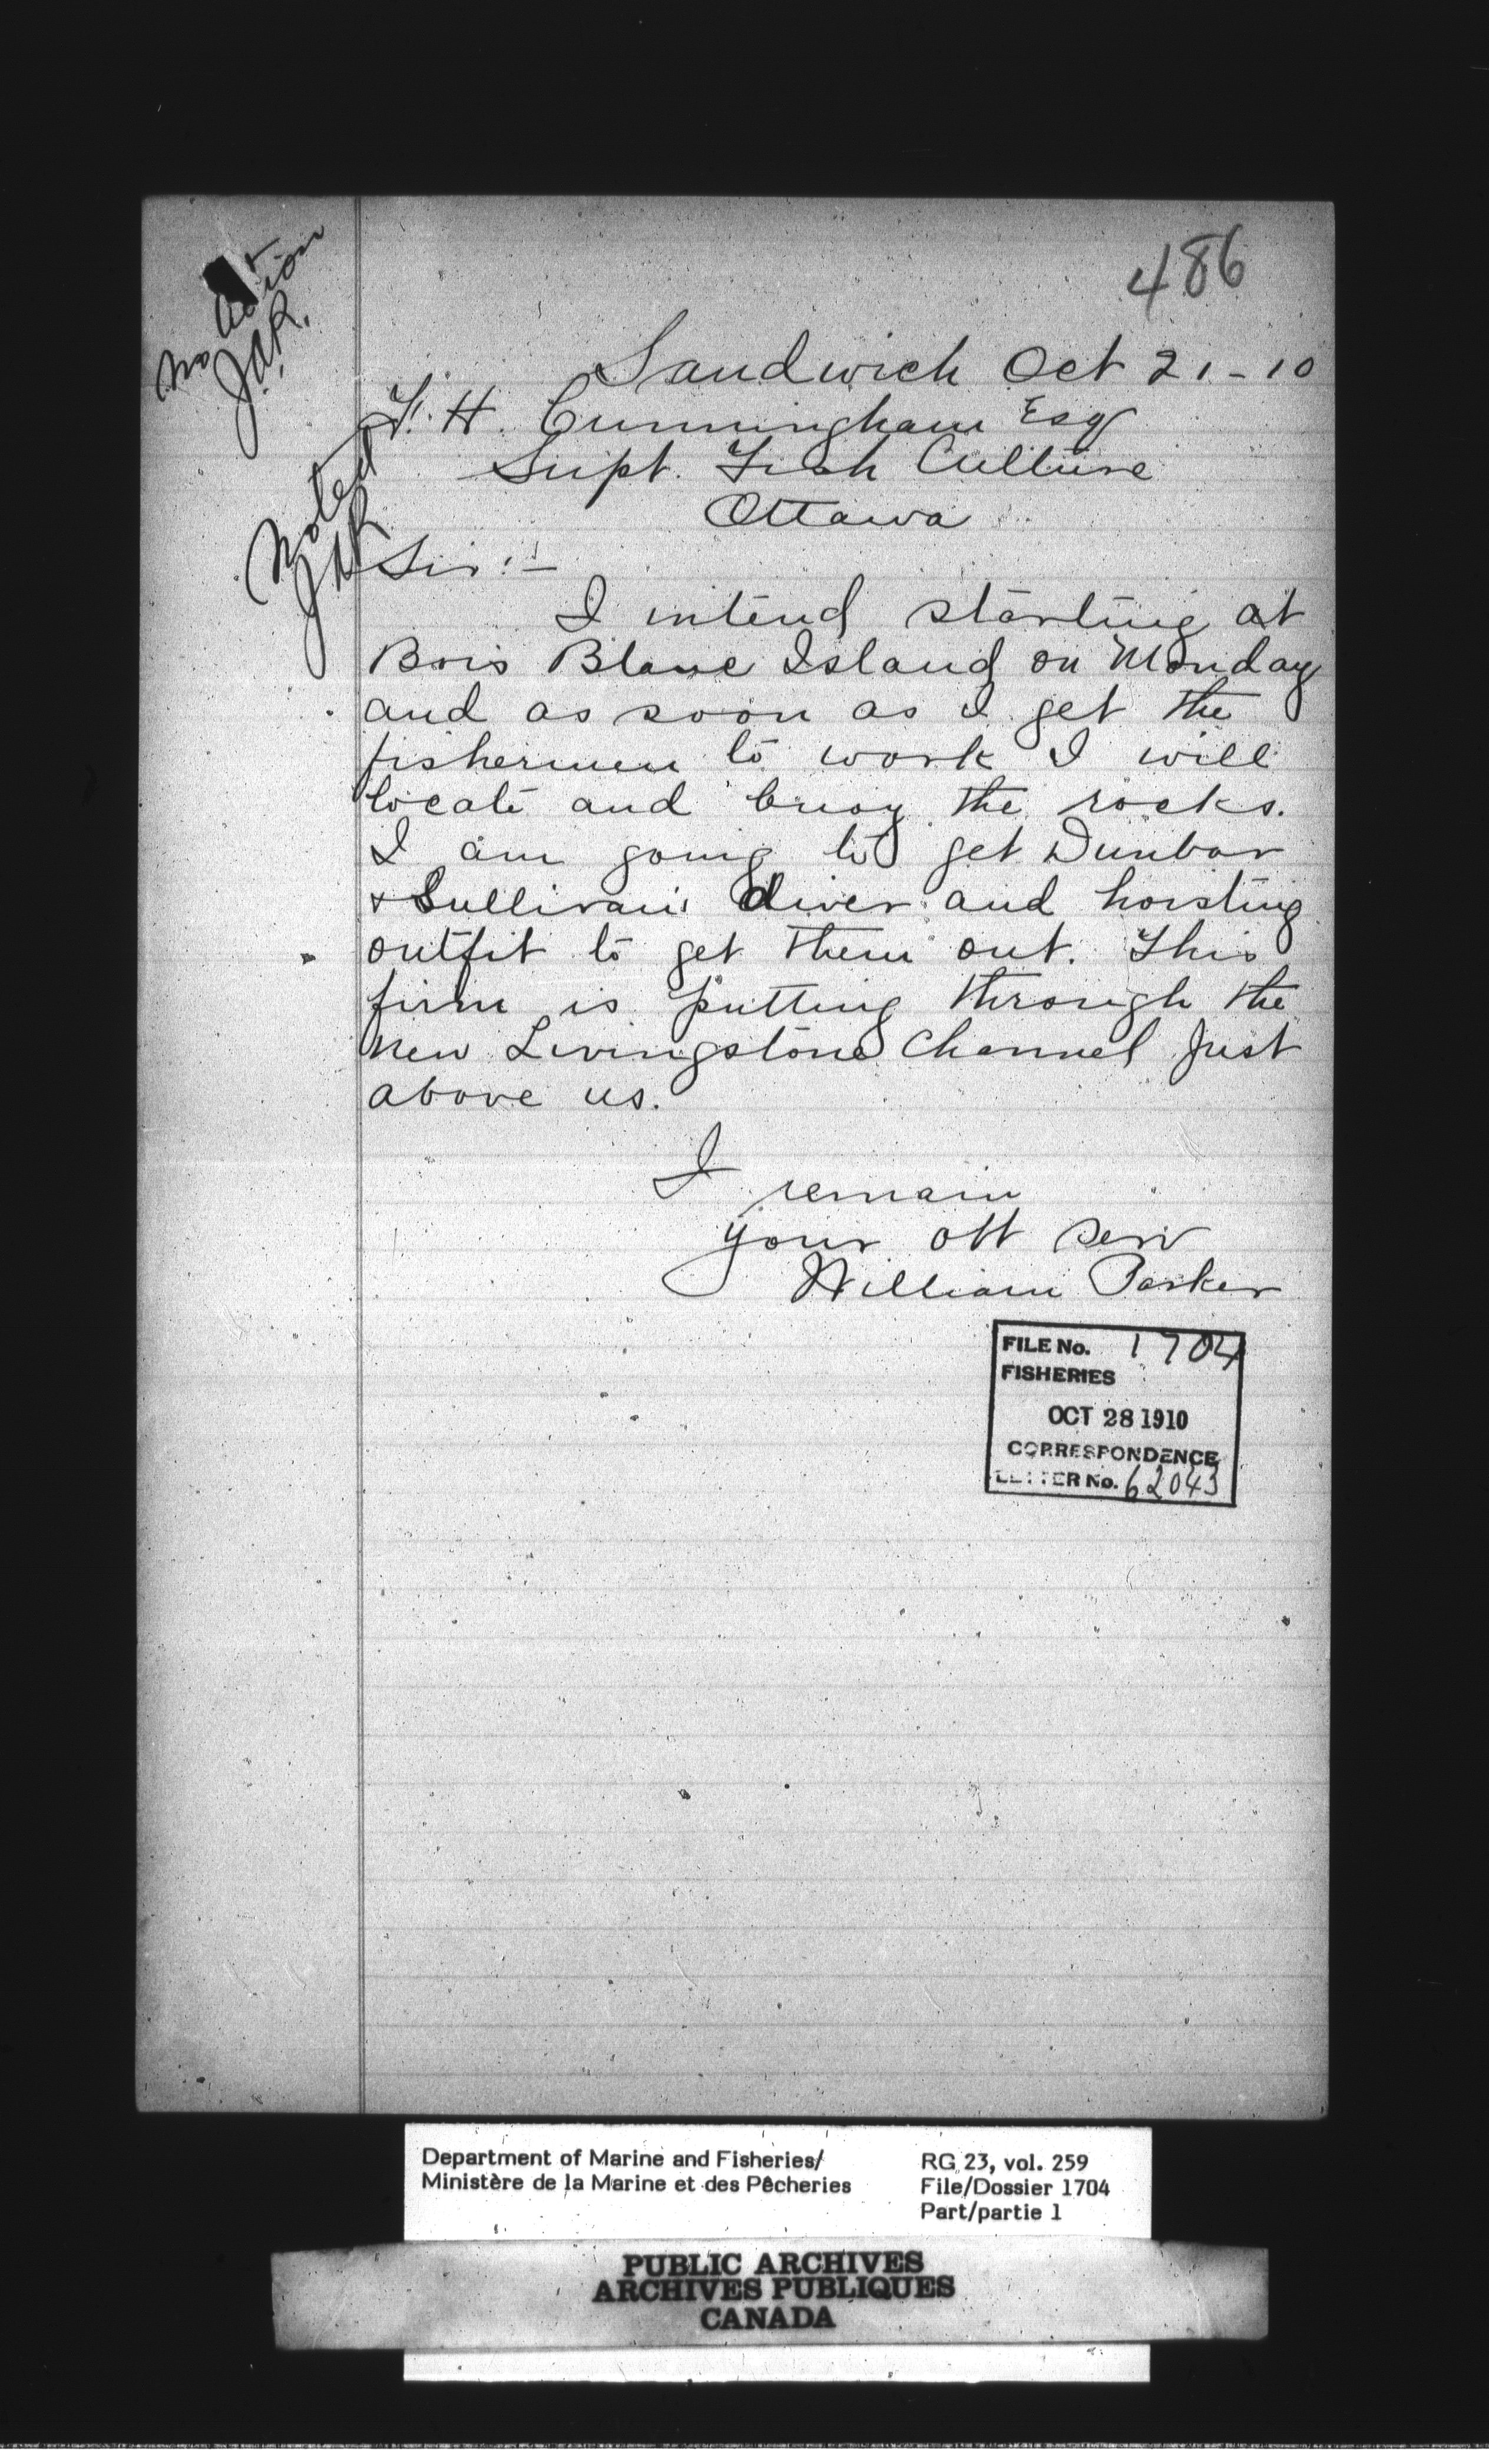 486
No Action
J.A.R.
Noted
JAR
Sandwich Oct 21-10
F. H. Cunningham Esq
Supt. Fish Culture
Ottawa
Sir:-
I intend starting at
Bois Blanc Island on Monday
and as soon as I get the
fishermen to work I will
locate and buoy the rocks.
I am going to get Dunbar
& Sullivan's diver and hoisting
outfit to get them out. This
firm is putting through the
new Livingstone Channel just
above us.
I remain
your obt serv
William Parker
FILE No. 1704
FISHERIES
OCT 28 1910
CORRESPONDENCE
LETTER No. 62043
Department of Marine and Fisheries/
Ministère de la Marine et des Pêcheries
RG 23, vol. 259
File/Dossier 1704
Part/partie 1
PUBLIC ARCHIVES
ARCHIVES PUBLIQUES
CANADA